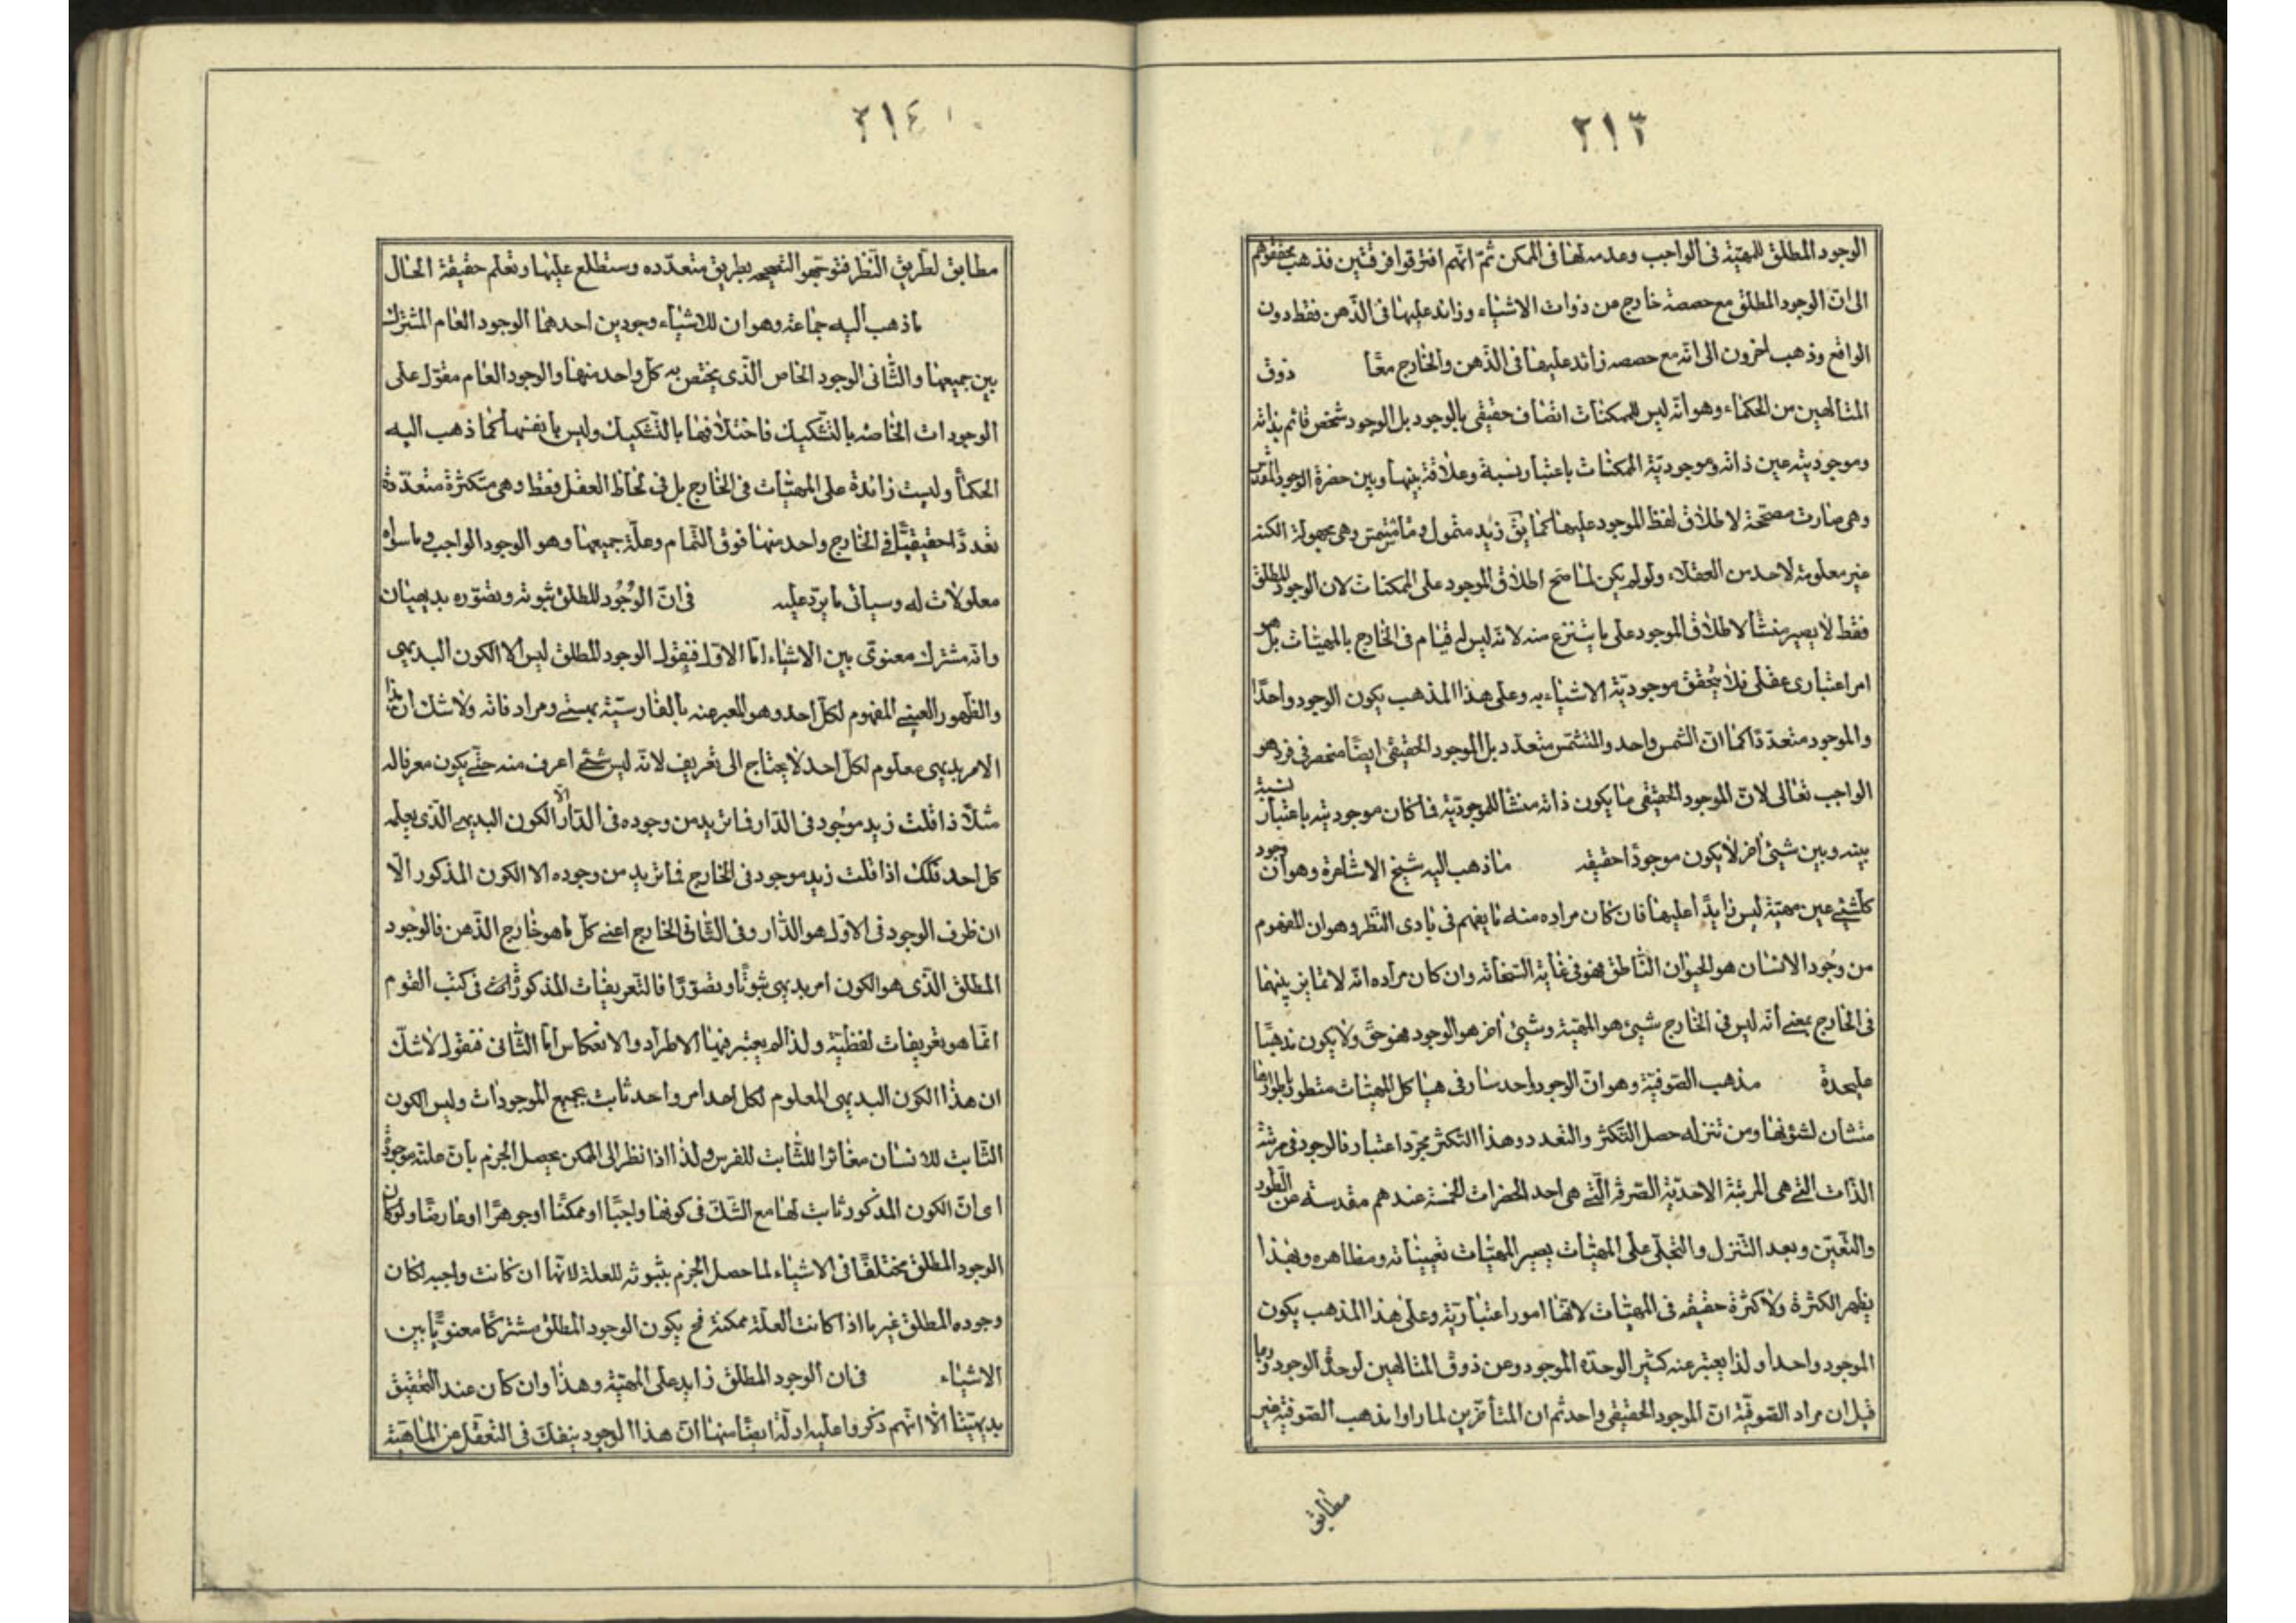 ٢١٣
الوجود المطلق للمهيّة فى الواجب وعدمه لها فى الممكن ثمّ انّهم افترقوا فرقتين فذهب محققوهم
الى انّ الوجود المطلق مع حصصه خارج من ذوات الاشياء وزائد عليها فى الذّهن فقط دون
الواقع وذهب اخرون الى انّه مع حصصه زائد عليها فى الذّهن والخارج معًا ذوق
المتالهين من الحكماء وهو انّه ليس للممكنات اتصاف حقيقى بالوجود بل الوجود شخص قائم بذاته
وموجوديته عين ذاته وموجوديّة الممكنات باعتبار نسبة وعلاقة بينها وبين حضرة الوجود المقدس
وهى صارت مصحّحة لاطلاق لفظ الموجود عليها كما يق زيد متمول وماء متشمس وهى مجهولة الكنه
غير معلومة لاحد من العقلاء ولو لم يكن لما صح اطلاق الموجود على الممكنات لان الوجود المطلق
فقط لا يصير منشأ لاطلاق الموجود على ما ينتزع منه لانّه ليس له قيام فى الخارج بالمهيّات بل هو
امر اعتبارى عقلى فلا يتحقق موجوديّة الاشياء به وعلى هذا المذهب يكون الوجود واحدًا
والموجود متعدّدًا كما انّ الشمس واحد والمتشمّس متعدّد بل الموجود الحقيقى ايضًا منحصر فى فرد هو
الواجب تعالى لانّ الموجود الحقيقى ما يكون ذاته منشأ للموجوديّة فما كان موجوديته باعتبار نسبة
بينه وبين شيئ اخر لا يكون موجودًا حقيقه ما ذهب اليه شيخ الاشاعرة وهو ان وجود
كلّ شيئ عين مهيّته ليس زايدًا عليها فان كان مراده منه ما يفهم فى بادى النّظر وهو ان المفهوم
من وجود الانسان هو الحيوان النّاطق فهو فى غاية السّخافه وان كان مراده انّه لا تمايز بينهما
فى الخارج بمعنى انّه ليس فى الخارج شيئ هو المهيّة وشيئ اخر هو الوجود فهو حقّ ولا يكون مذهبًا
عليحدة مذهب الصّوفيّة وهو انّ الوجود واحد سار فى هياكل المهيّات متطور باطوارها
متشان لشؤنها ومن تنزله حصل التّكثر والتعدد وهذا التكثر بمجرّد اعتبار فالوجود فى مرتبة
الذّات الّتى هى المرتبة الاحديّة الصّرفة الّتى هى احد الحضرات الخمسة عندهم مقدسه من التطور
والتّعيّن وبعد التّنزل والتّجلّى على المهيّات يصير المهيّات تعيّناته ومظاهره وبهذا
يظهر الكثرة ولا كثرة حقيقه فى المهيّات لانّها امور اعتباريّة وعلى هذا المذهب يكون
الموجود واحدا ولذا يعبّر عنه كثير الوحدة الموجود وعن ذوق المتالهين لوحدة الوجود وربما
قيل ان مراد الصّوفيّة انّ الموجود الحقيقى واحد ثم ان المتأخّرين لما راوا مذهب الصّوفيّة غير
مطابق
٢١٤
مطابق لطريق النّظر فتوجّهوا التصحيحه بطريق متعدّده وستطلع عليها وتعلم حقيقة الحال
ما ذهب اليه جماعة وهو ان للاشياء وجودين احدهما الوجود العام المشترك
بين جميعها والثّانى الوجود الخاص الّذى يختص به كلّ واحد منها والوجود العام مقول على
الوجودات الخاصّه بالتشكيك فاختلافها بالتّشكيك وليس بانفسها كما ذهب اليه
الحكمأ وليست زائدة على المهيّات فى الخارج بل فى لحاظ العقل فقط وهى متكثرة متعدّدة
تعددًا حقيقيًّا فى الخارج واحد منها فوق التّمام وعلّة جميعها وهو الوجود الواجب وما سواه
معلولات له وسيأتى ما يرد عليه فى انّ الوجود المطلق ثبوته وتصوّره بديهيان
وانّه مشترك معنوىّ بين الاشياء امّا الاوّل فنقول الوجود المطلق ليس الا الكون البديهى
والظّهور العينى المفهوم لكلّ احد وهو المعبر عنه بالفارسيّة بهستى ومرادفاته ولا شك ان هذا
الامر بديهى معلوم لكلّ احد لا يحتاج الى تعريف لانّه ليس شيئ اعرف منه حتّى يكون معرفا له
مثلًا اذا قلت زيد موجود فى الدّار فما تريد من وجوده فى الدّار الّا الكون البديهى الّذى يعلمه
كل احد فكك اذا قلت زيد موجود فى الخارج فما تريد من وجوده الا الكون المذكور الّا
ان ظرف الوجود فى الاوّل هو الدّار وفى الثّانى الخارج اعنى كلّ ما هو خارج الذّهن فالوجود
المطلق الّذى هو الكون امر بديهى ثبوتًا وتصوّرًا فالتّعريفات المذكورات فى كتب القوم
انّما هو تعريفات لفظيّة ولذا لم يعتبر فيها الاطراد والانعكاس امّا الثّانى فنقول لا شكّ
ان هذا الكون البديهى المعلوم لكل احد امر واحد ثابت بجميع الموجودات وليس الكون
الثّابت للانسان مغائرا للثّابت للفرس ولذا اذا نظر الى الممكن يحصل الجزم بانّ علته موجودة
اى انّ الكون المذكور ثابت لها مع الشّكّ فى كونها واجبًا او ممكنًا او جوهرًا او عارضًا ولو كان
الوجود المطلق مختلفًا فى الاشياء لما حصل الجزم بثبوته للعلة لانّها ان كانت واجبه لكان
وجوده المطلق غير ما اذا كانت العلّة ممكنة فح يكون الوجود المطلق مشتركًا معنويًّا بين
الاشياء فى ان الوجود المطلق زايد على المهيّة وهذا وان كان عند التحقيق
بديهيّا الّا انّهم ذكروا عليه ادلّة ايضًا منها انّ هذا الوجود ينفكّ فى التّعقّل من الماهيّة